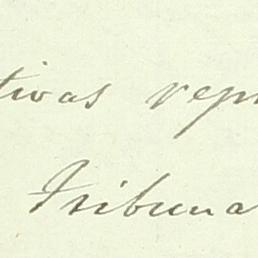 tivas repr
Tribuna